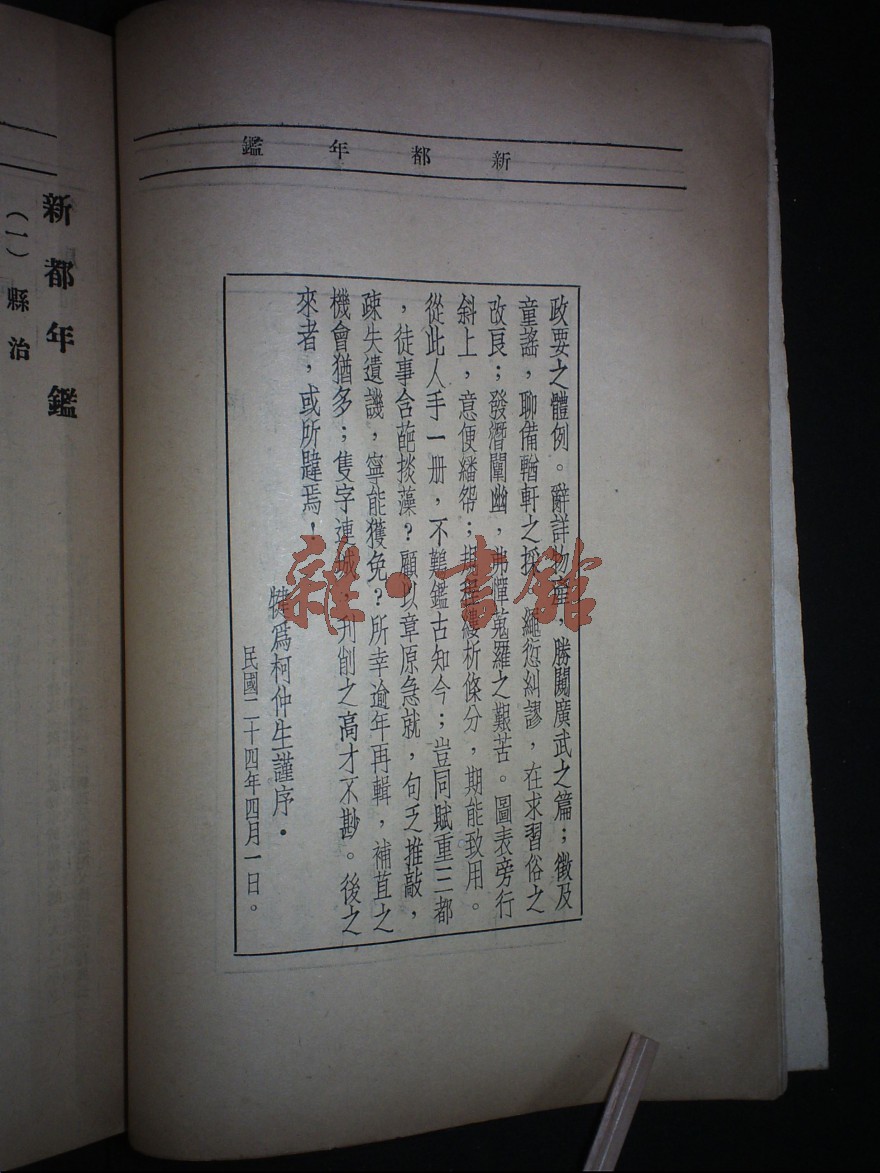 新都年鑑
政要之體例。辭詳物產，勝闢廣武之篇；徵及
童謠，聊備輶軒之採。繩愆糾謬，在求習俗之
改良；發潛闡幽，弗憚蒐羅之艱苦。圖表旁行
斜上，意便繙帑；期程縷析條分，期能致用。
從此人手一册，不難鑑古知今；豈同賦重三都
，徒事含葩掞藻？顧以章原急就，句乏推敲，
疎失遺譏，寧能獲免？所幸逾年再輯，補苴之
機會猶多；隻字連城，刊削之高才不尠。後之
來者，或所韙焉！
犍爲柯仲生謹序。
民國二十四年四月一日。
新都年鑑
（一）縣治
雜·書館